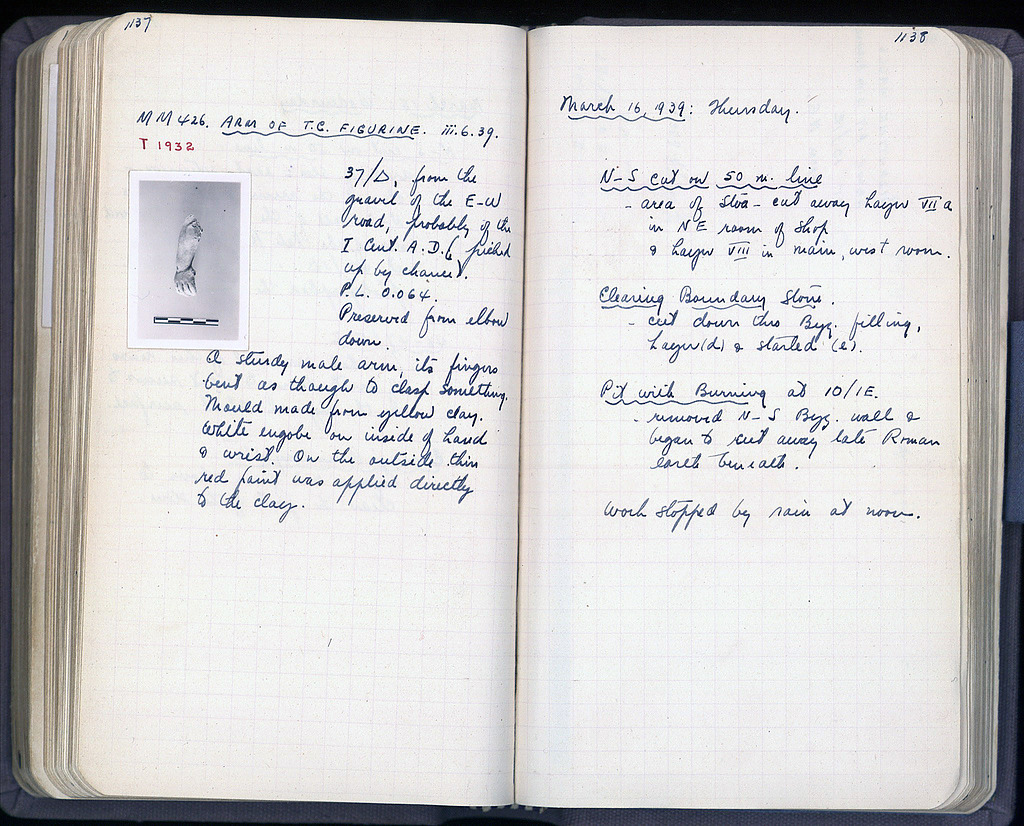 1137
MM 426. ARM OF T.C. FIGURINE. iii.6.39.
T 1932
37/Δ, from the
gravel of the E-W
road, probably of the
I Cent. A.D. (picked
up by chance).
P.L. 0.064.
Preserved from elbow
down.
A sturdy male arm, its fingers
bent as though to clasp something.
Mould made from yellow clay.
White engobe on inside of hand
& wrist. On the outside thin
red paint was applied directly
to the clay.
1138
March 16, 1939: Thursday.
N-S cut on 50 m. line
- area of Stoa - cut away Layer VII a
in NE room of shop
& Layer VIII in main, west room.
Clearing Boundary Stone.
- cut down thru Byz. filling,
Layer (d) & started (e).
Pit with Burning at 10/ΙΕ.
- removed N-S Byz. wall &
began to cut away late Roman
earth beneath.
Work stopped by rain at noon.